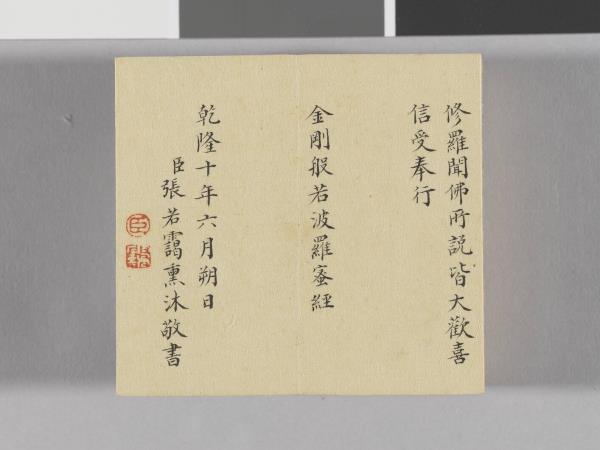 修羅聞佛所説皆大歡喜
信受奉行
金剛般若波羅蜜經
乾隆十年六月朔日
臣張若靄熏沐敬書
臣